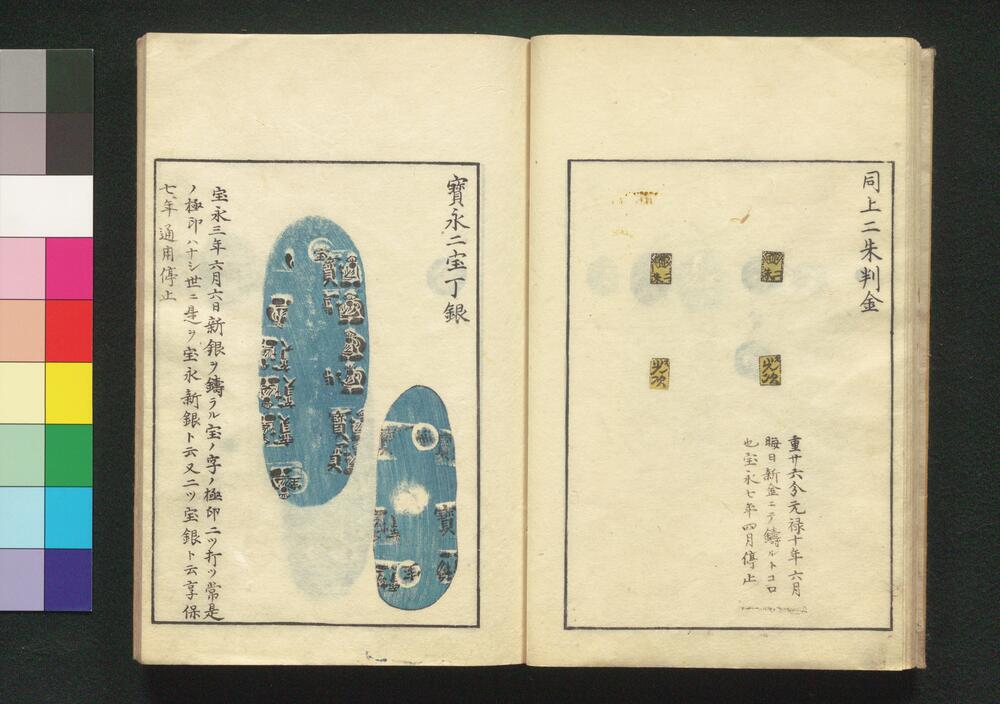 同上二朱判金
重廿六分元禄十年六月
晦日新金ニテ鑄ルトコロ
也宝永七年四月停止
光次
光次
寳永二宝丁銀
宝永三年六月六日新銀ヲ鑄ラル宝ノ字ノ極印二ツ打ツ常是
ノ極印ハナシ世ニ是ヲ宝永新銀ト云又二ツ宝銀ト云享保
七年通用停止